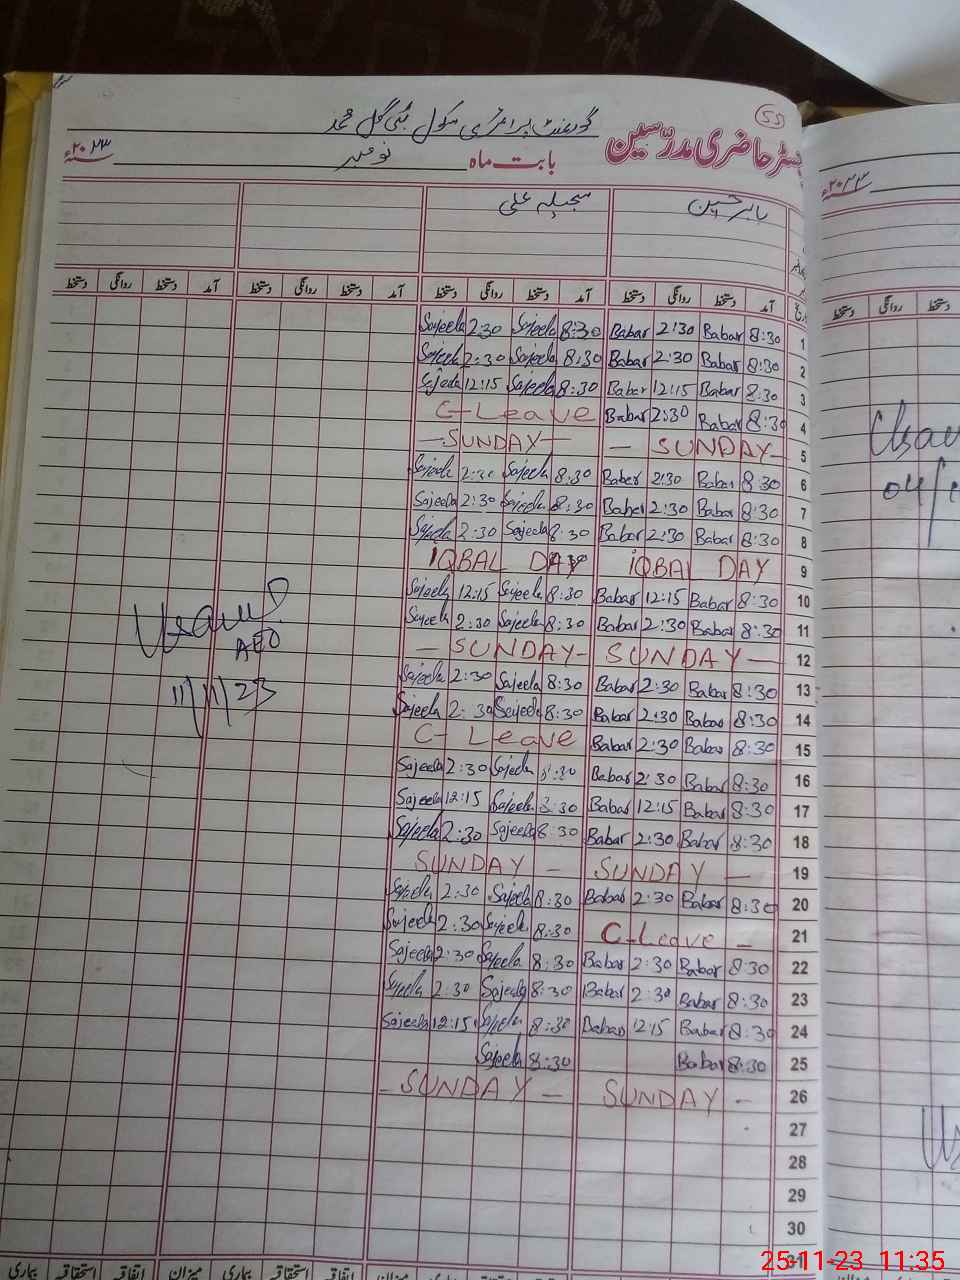 55
رجسٹر حاضری مدرّسین گورنمنٹ پرائمری سکول بستی گل محمد
بابت ماہ نومبر ۲۰۲۳ء
بابر حسین سجیلہ علی
آمد دستخط روانگی دستخط آمد دستخط روانگی دستخط آمد دستخط روانگی دستخط آمد دستخط روانگی دستخط
Sajeela 2:30 Sajeela 8:30 Babar 2:30 Babar 8:30 1
Sajeela 2:30 Sajeela 8:30 Babar 2:30 Babar 8:30 2
Sajeela 12:15 Sajeela 8:30 Babar 12:15 Babar 8:30 3
C-Leave Babar 2:30 Babar 8:30 4
— SUNDAY — — SUNDAY — 5
Sajeela 2:30 Sajeela 8:30 Babar 2:30 Babar 8:30 6
Sajeela 2:30 Sajeela 8:30 Babar 2:30 Babar 8:30 7
Sajeela 2:30 Sajeela 8:30 Babar 2:30 Babar 8:30 8
IQBAL DAY IQBAL DAY 9
Sajeela 12:15 Sajeela 8:30 Babar 12:15 Babar 8:30 10
Sajeela 2:30 Sajeela 8:30 Babar 2:30 Babar 8:30 11
— SUNDAY — SUNDAY — 12
Sajeela 2:30 Sajeela 8:30 Babar 2:30 Babar 8:30 13
Sajeela 2:30 Sajeela 8:30 Babar 2:30 Babar 8:30 14
C-Leave Babar 2:30 Babar 8:30 15
Sajeela 2:30 Sajeela 8:30 Babar 2:30 Babar 8:30 16
Sajeela 12:15 Sajeela 8:30 Babar 12:15 Babar 8:30 17
Sajeela 2:30 Sajeela 8:30 Babar 2:30 Babar 8:30 18
SUNDAY — SUNDAY — 19
Sajeela 2:30 Sajeela 8:30 Babar 2:30 Babar 8:30 20
Sajeela 2:30 Sajeela 8:30 C-Leave — 21
Sajeela 2:30 Sajeela 8:30 Babar 2:30 Babar 8:30 22
Sajeela 2:30 Sajeela 8:30 Babar 2:30 Babar 8:30 23
Sajeela 12:15 Sajeela 8:30 Babar 12:15 Babar 8:30 24
Sajeela 8:30 Babar 8:30 25
- SUNDAY — SUNDAY - 26
27
28
29
30
31
AEO
11/11/23
میزان اتفاقیہ استحقاقیہ بیماری میزان اتفاقیہ استحقاقیہ بیماری
۲۰۲۳ء
روانگی دستخط
دستخط
04/1
25-11-23 11:35